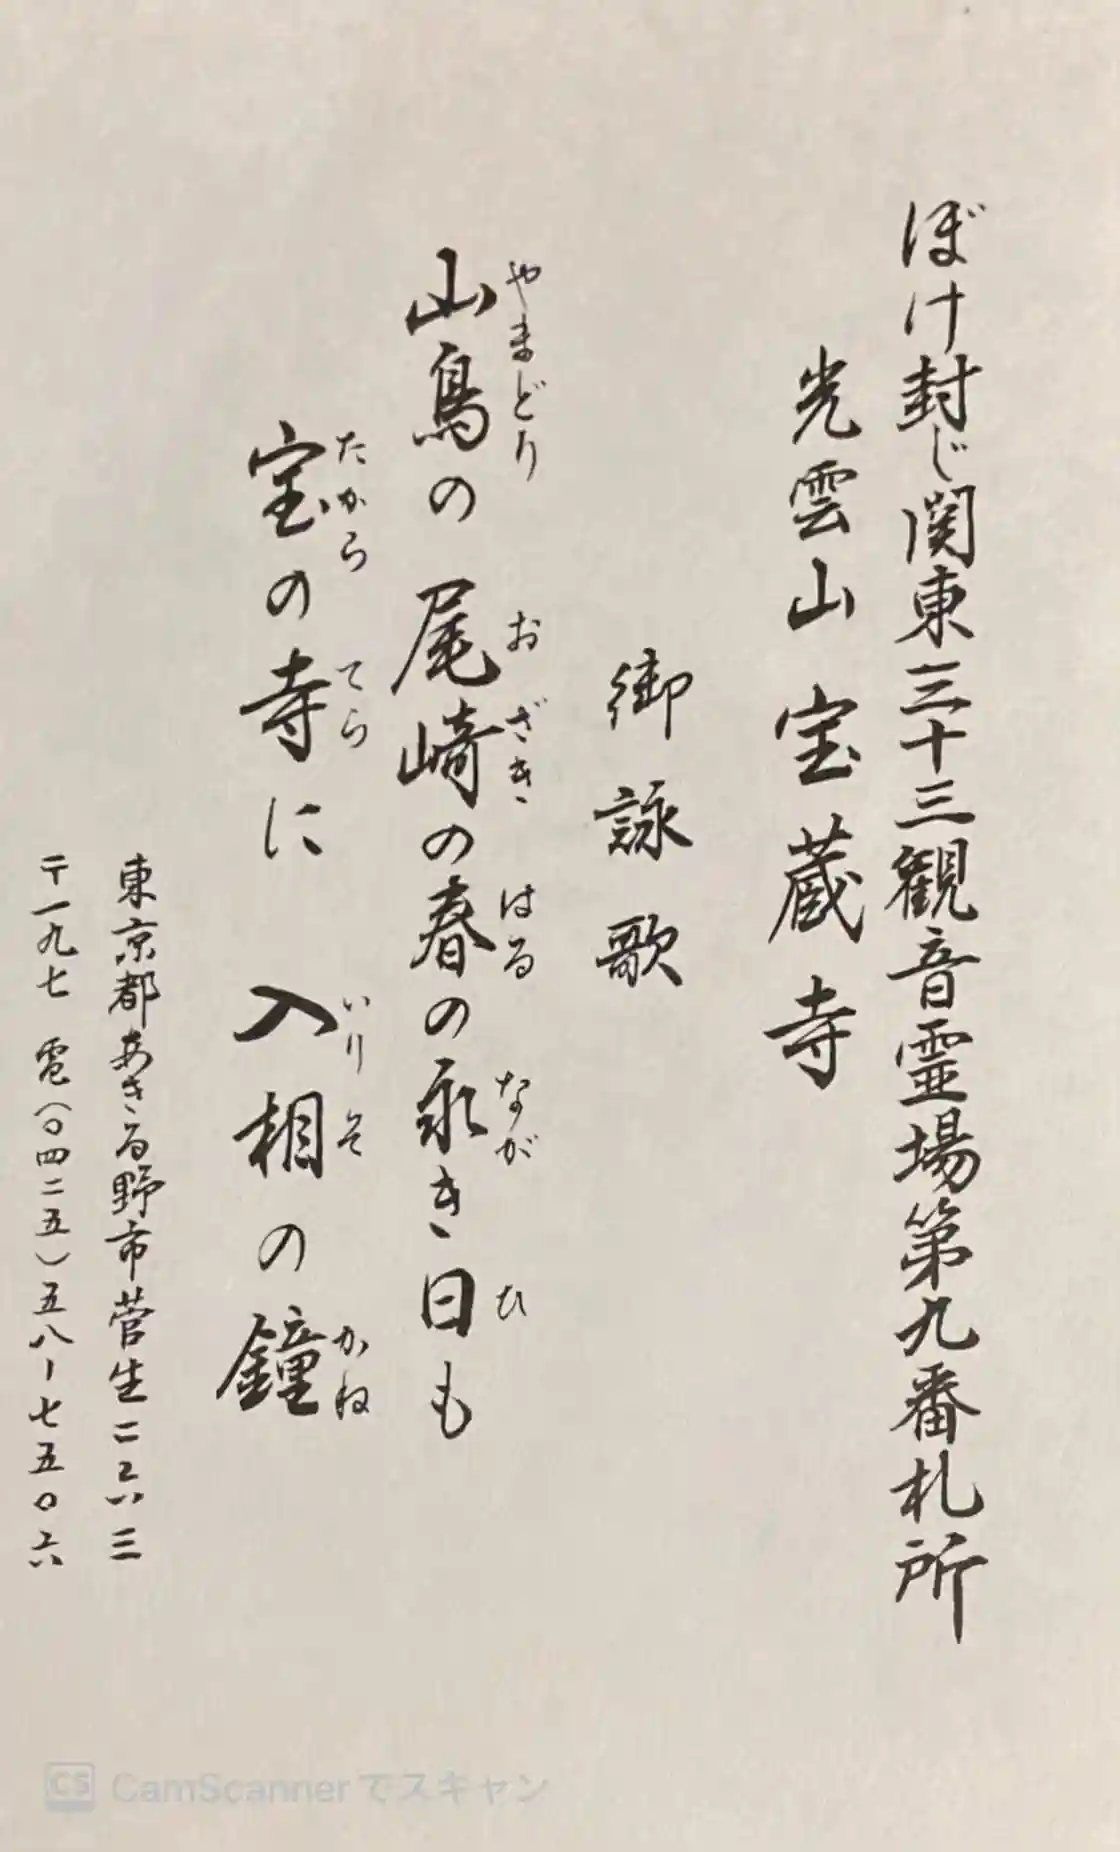 ぼけ封じ関東三十三観音霊場第九番札所
光雲山 宝蔵寺
御詠歌
山鳥の 尾崎の春の永き日も
やまどり おざき はる なが ひ
宝の寺に 入相の鐘
たから てら いりそ かね
東京都あきる野市菅生二二六三
〒一九七 電(〇四二五)五八ー七五〇六
CS CamScannerでスキャン